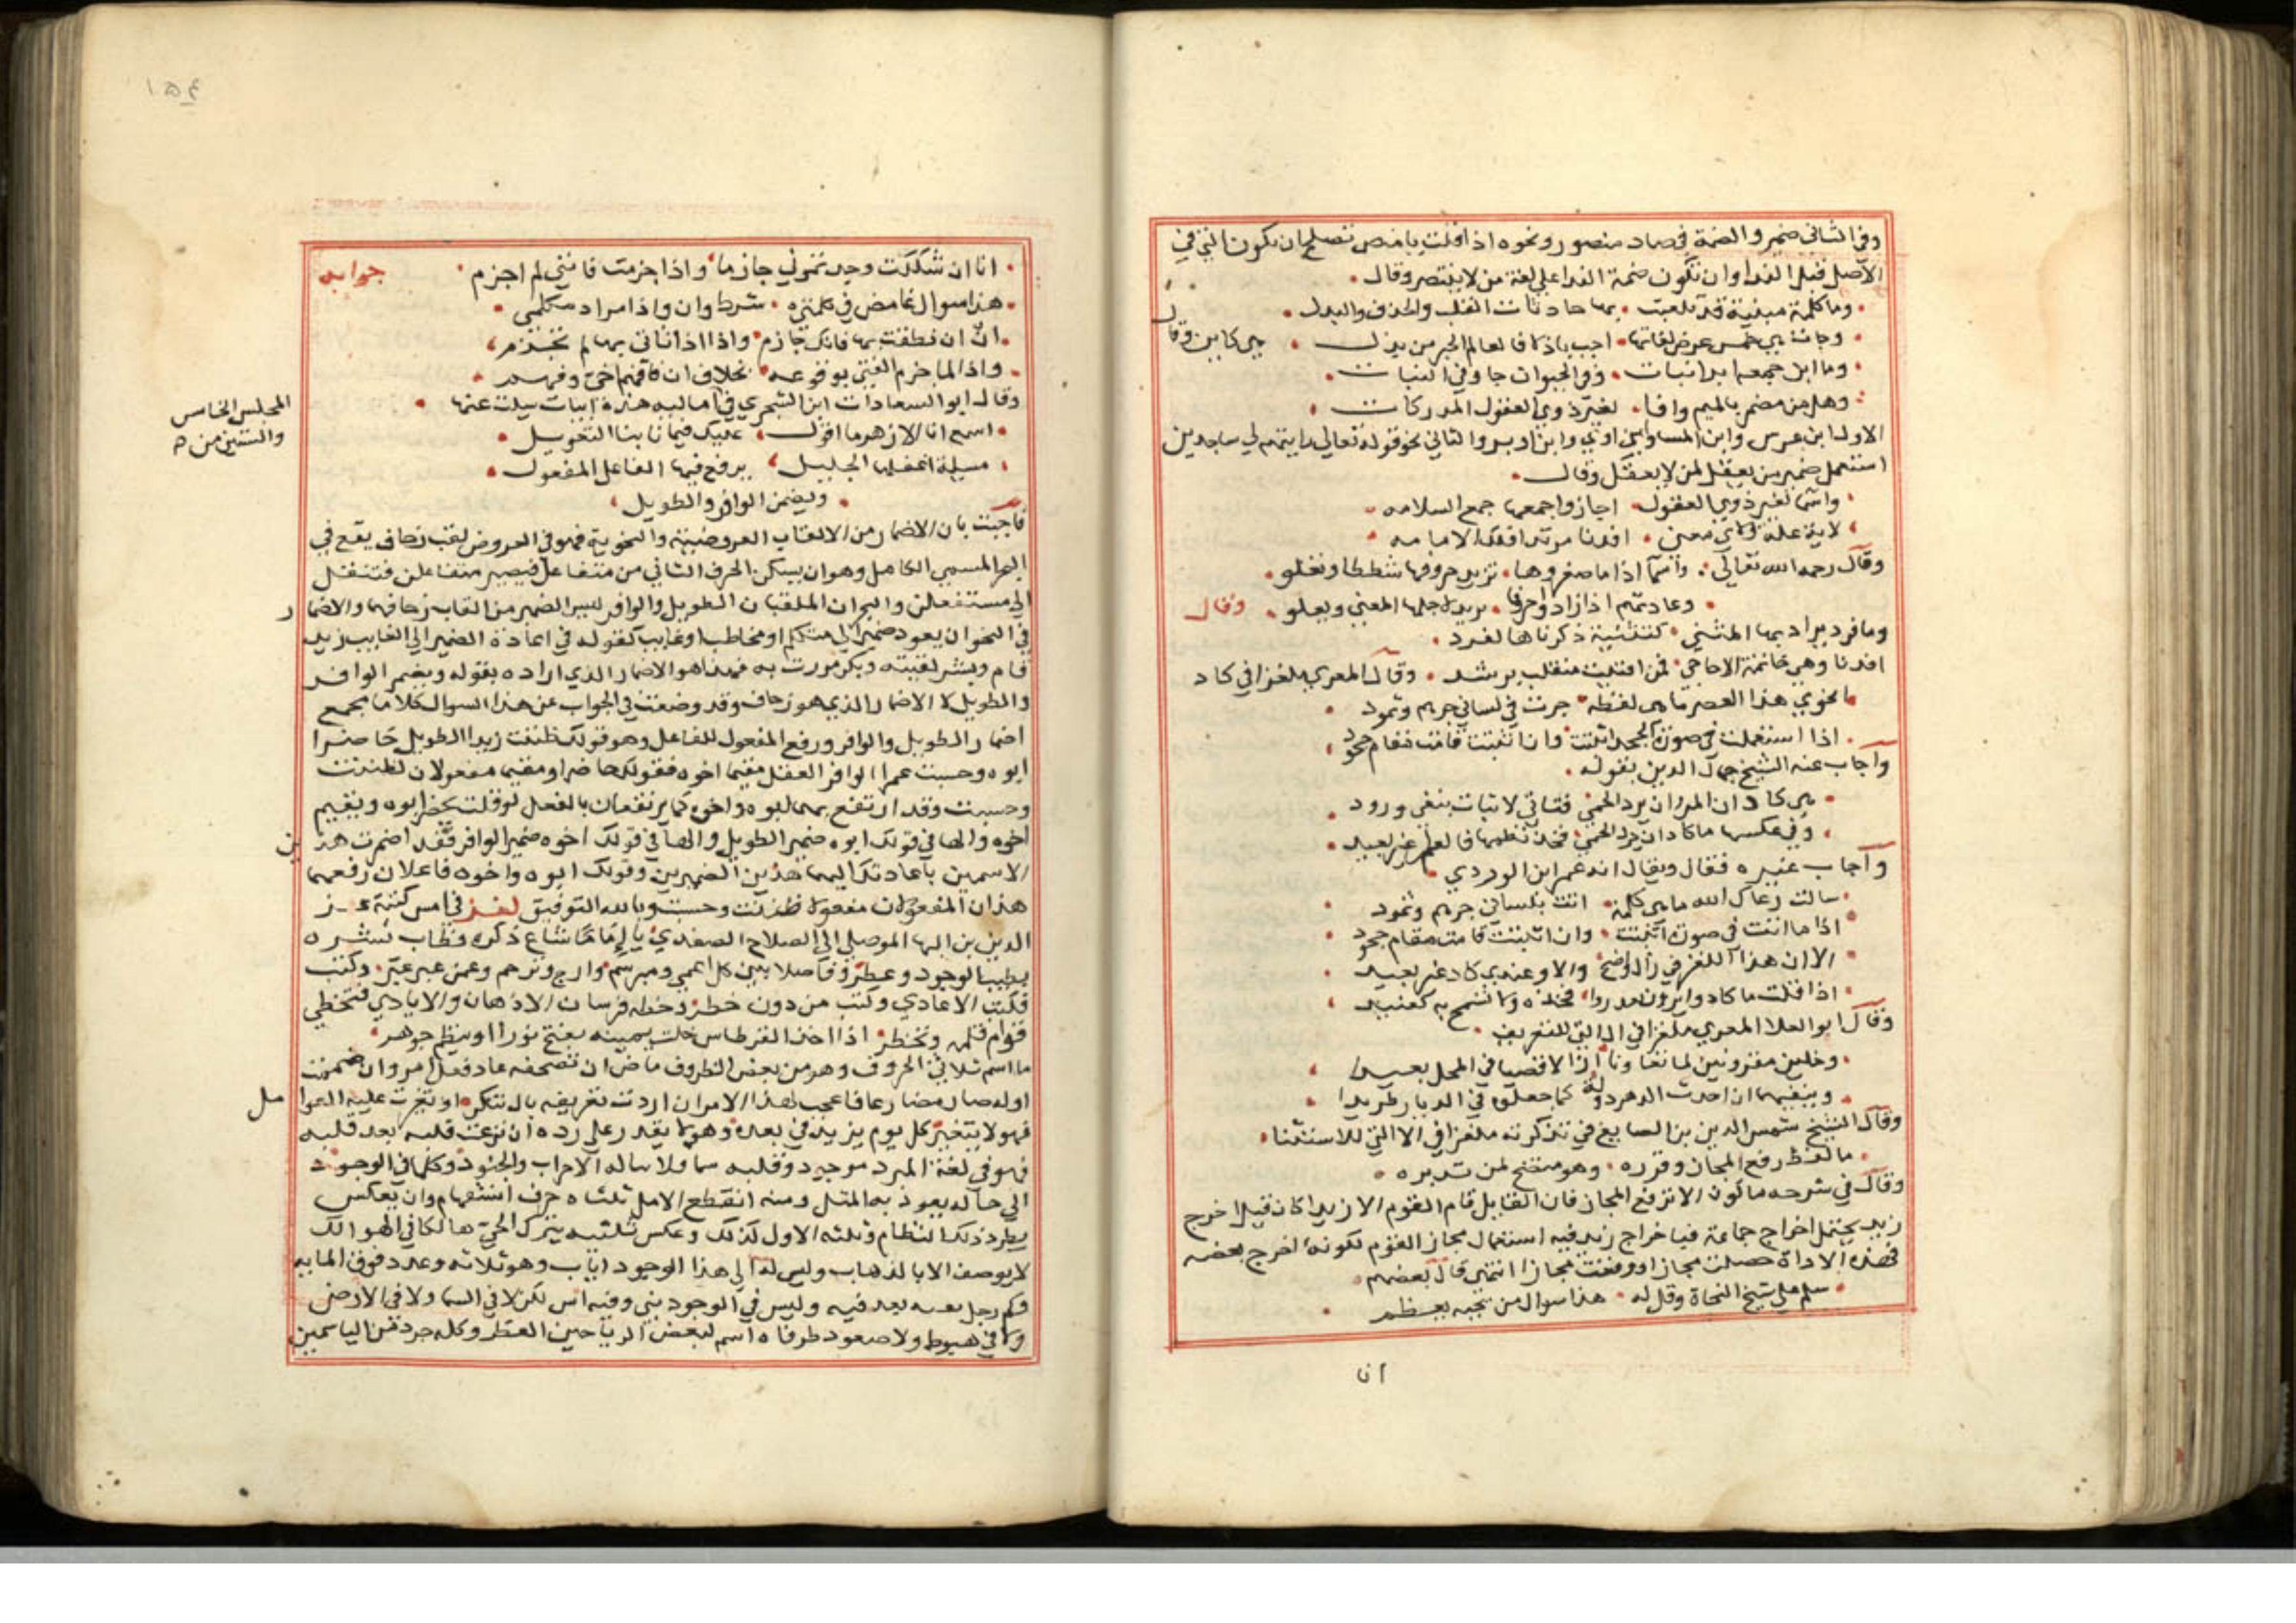 وفي الثاني ضمير والضمة في صاد منصور ونحوه اذا قلت يا منص تصلح ان تكون التي في
الاصل قبل الندا وان تكون ضمة الندا على لغة من لا ينتصر وقال
وما كلمة مبنية قد تلعبت بها حادثات القلب والحذف والبدل
وجات بي خمس عرض لغاتها اجب يا ذكا فالعالم الحبر من بذل هي كاين وقال
وما ابن جمعه ابدا نبات وفي الحيوان جا وفي النبات
وهل من مضمر بالميم وافا لغير ذوي العقول المدركات
الاول ابن عرس وابن المسا وابن اوي وابن ادبر والثاني نحو قوله تعالى رايتهم لي ساجدين
استعمل ضمير من يعقل لمن لا يعقل وقال
واسما لغير ذوي العقول اجازوا جمعها جمع السلامه
لاية علة ولاي معنى افدنا مرتد افتك الامامه
وقال رحمه الله تعالى واسما اذا ما صغروها تزيد حروفها شططا وتغلو
وعادتهم اذا زادوا حرفا يزيد لاجلها المعنى ويعلو وقال
وما فرد يراد بها المثنى كتثنية ذكرناها لفرد
افدنا وهي خاتمة الاحاجي لمن افتيت منقلب برشد وقال المعري ملغزا في كاد
انحوي هذا العصر ما هي لفظة جرت في لساني جرهم وثمود
اذا استعملت في صورة الجحد اثبتت وان اثبتت قامت مقام جحود
واجاب عنه الشيخ جمال الدين بقوله
هي كاد ان المرء ان يرد الحمى فتاتي لاثبات بنفي ورود
وفي عكسها ما كاد ان يرد الحمى فخذ نظمها فالعلم غير بعيد
واجاب غيره فقال ويقال انه عمر ابن الوردي
سالت رعاك الله ما هي كلمة اتت بلساني جرهم وثمود
اذا ما اتت في صورة النفي اثبتت وان اثبتت قامت مقام جحود
الا ان هذا اللغز في زال واضح والا وعندي كاد غير بعيد
اذا قلت ما كادوا يرون مدروا فخذه ولا تسمح به كعنيد
وقال ابو العلا المعري ملغزا في ال التي للتعريف
وخلين مقرونين لما تعاونا ازالا قصيا في المحل بعيدا
وينفيهما ان احدث الدهر دولة كما جعلوه في الديار طريدا
وقال الشيخ شمس الدين بن الصايغ في تذكرته ملغزا في الا التي للاستثنا
ما لفظ رفع المجاز وقرره وهو متضح لمن تدبره
وقال في شرحه ما كون الا ترفع المجاز فان القايل قام القوم الا زيدا كان قبل اخرج
زيد يحتمل اخراج جماعة فباخراج زيد فيه استعمال مجاز القوم لكونه اخرج بعضه
فهذه الاداة حصلت مجازا ودفعت مجازا انتهى قال بعضهم
سلم على شيخ النحاة وقل له هذا سوال من يجبه يعظم
انا
١٥٤
انا ان شككت وجدتموني جازما واذا جزمت فانني لم اجزم جوابه
هذا سوال غامض في كلمتي شرط وان واذا مراد مكلمي
ان ان نطقت بها فانك جازم واذا اذا تاتي بها لم تجزم
واذا لما جزم الفتى بوقوعه بخلاف ان فافهم اخي وفهم
وقال ابو السعادات ابن الشجري في اماليه هذه ابيات سيلت عنها
المجلس الخامس
والستين من ه
اسمع ابا الازهر ما اقول عليك فيما نابنا التعويل
مسيلة اغفلها الخليل يرفع فيها الفاعل المفعول
ويضمر الوافر والطويل
فاجبت بان الاضمار من الالقاب العروضية والنحوية فهو في العروض لقب زحاف يقع في
البحر المسمى الكامل وهو ان يسكن الحرف الثاني من متفاعلن فيصير متفاعلن فتنقل
الى مستفعلن والبحران الملقبان الطويل والوافر ليس الضمير من القاب زحافهما والاضمار
في النحو ان يعود ضمير الى متكلم او مخاطب او غايب كقوله في اعادة الضمير الى الغايب زيد
قام وبشر لقيته وبكر مررت به فهذا هو الاضمار الذي اراده بقوله ويضمر الوافر
والطويل لا الاضمار الذي هو زحاف وقد وضعت في الجواب عن هذا السوال كلاما يجمع
اضمار الطويل والوافر ورفع المفعول للفاعل وهو قولك ظننت زيدا الطويل حاضرا
ابوه وحسبت عمرا الوافر العقل مقيما اخوه فقولك حاضرا ومقيما مفعولان لظننت
وحسبت وقد ارتفع بهما ابوه واخوه كما يرتفعان بالفعل لو قلت يحضر ابوه ويقيم
اخوه والها في قولك ابوه ضمير الطويل والها في قولك اخوه ضمير الوافر فقد اضمرت هذين
الاسمين باعادتك اليهما هذين الضميرين وقولك ابوه واخوه فاعلان رفعهما
هذان المفعولان مفعولا ظننت وحسبت وبالله التوفيق لغز في امس كتبه عز
الدين بن البها الموصلي الى الصلاح الصفدي يا اماما شاع ذكره وطاب نشره
يطيب الوجود وعطر وفاصلا بين كل اعمى ومبرسم وارج وترحم وعمن عبر عبر وكتب
فكبت الاعادي وكتب من دون خطر وخطه فرسان الاذهان والايادي فتخطي
قوام قلمه وتخطر اذا اخذ القرطاس خلت يمينه يفتح نورا او ينظم جوهر
ما اسم ثلاثي الحروف وهو من بعض الظروف ماض ان تصحفه عاد فعل امر وان ضممت
اوله صار مضارعا فاعجب لهذا الامر ان اردت تعريفه بال تنكر او تغيرت عليه العوامل
فهو لا يتغير كل يوم يزيد في بعده وهو لا يقدر على رده ان نزعت قلبه بعد قلبه
فهو في لغة المبرد موجود وقلبه سما فلا تناله الاحزاب والجنود وكلما في الوجود
الى حاله يعود به المثل ومنه انقطع الامل ثلثاه حرف استفهام وان يعكس
يطرد ذلك النظام وثلثه الاول كذلك وعكس ثلثيه يترك الحي هالكا في الهوالك
لا يوصف الا بالذهاب وليس له الى هذا الوجود اياب وهو ثلاثة وعدده فوق المايه
فكم رجل بعده فيه وليس في الوجود بني وفيه اس لكن لا في السما ولا في الارض
ولا في هبوط ولا صعود طرفاه اسم لبعض الرياحين العطر وكله جرد من الياسمين